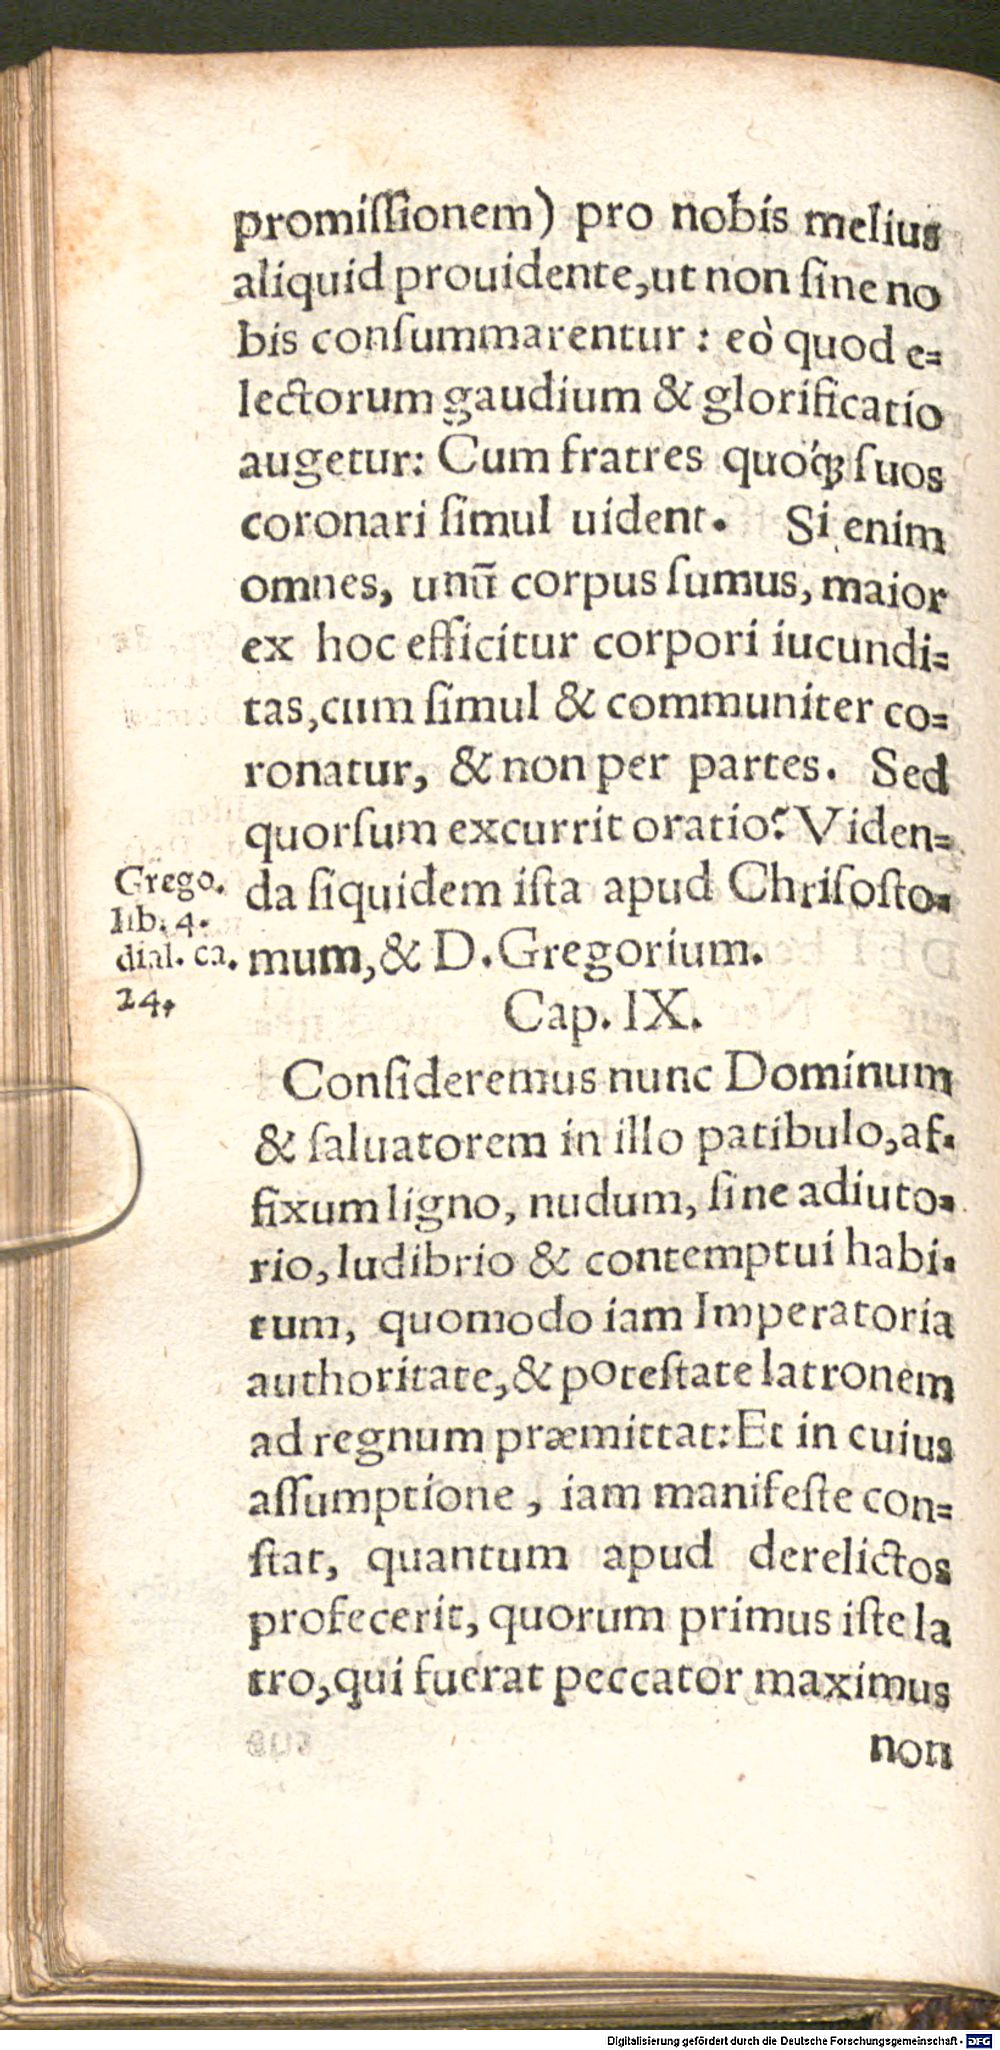 promiſſionem) pro nobis melius
aliquid prouidente,ut non ſine no
bis conſummarentur : eò quod e=
lectorum gaudium & glorificatio
augetur: Cum fratres quoq́ꝫ ſuos
coronari ſimul uident. Si enim
omnes, unũ corpus ſumus, maior
ex hoc efficitur corpori iucundi=
tas,cum ſimul & communiter co=
ronatur, & non per partes. Sed
quorſum excurrit oratio? Viden=
da ſiquidem iſta apud Chriſoſto-
mum,& D. Gregorium.
Grego.
lib. 4.
dial. ca.
24.
Cap. IX.
Conſideremus nunc Dominum
& ſaluatorem in illo patibulo,af-
fixum ligno, nudum, ſine adiuto-
rio, ludibrio & contemptui habi-
tum, quomodo iam Imperatoria
authoritate,& poteſtate latronem
ad regnum præmittat: Et in cuius
aſſumptione , iam manifeſte con=
ſtat, quantum apud derelictos
profecerit, quorum primus iſte la
tro,qui fuerat peccator maximus
non
Digitalisierung gefördert durch die Deutsche Forschungsgemeinschaft - DFG